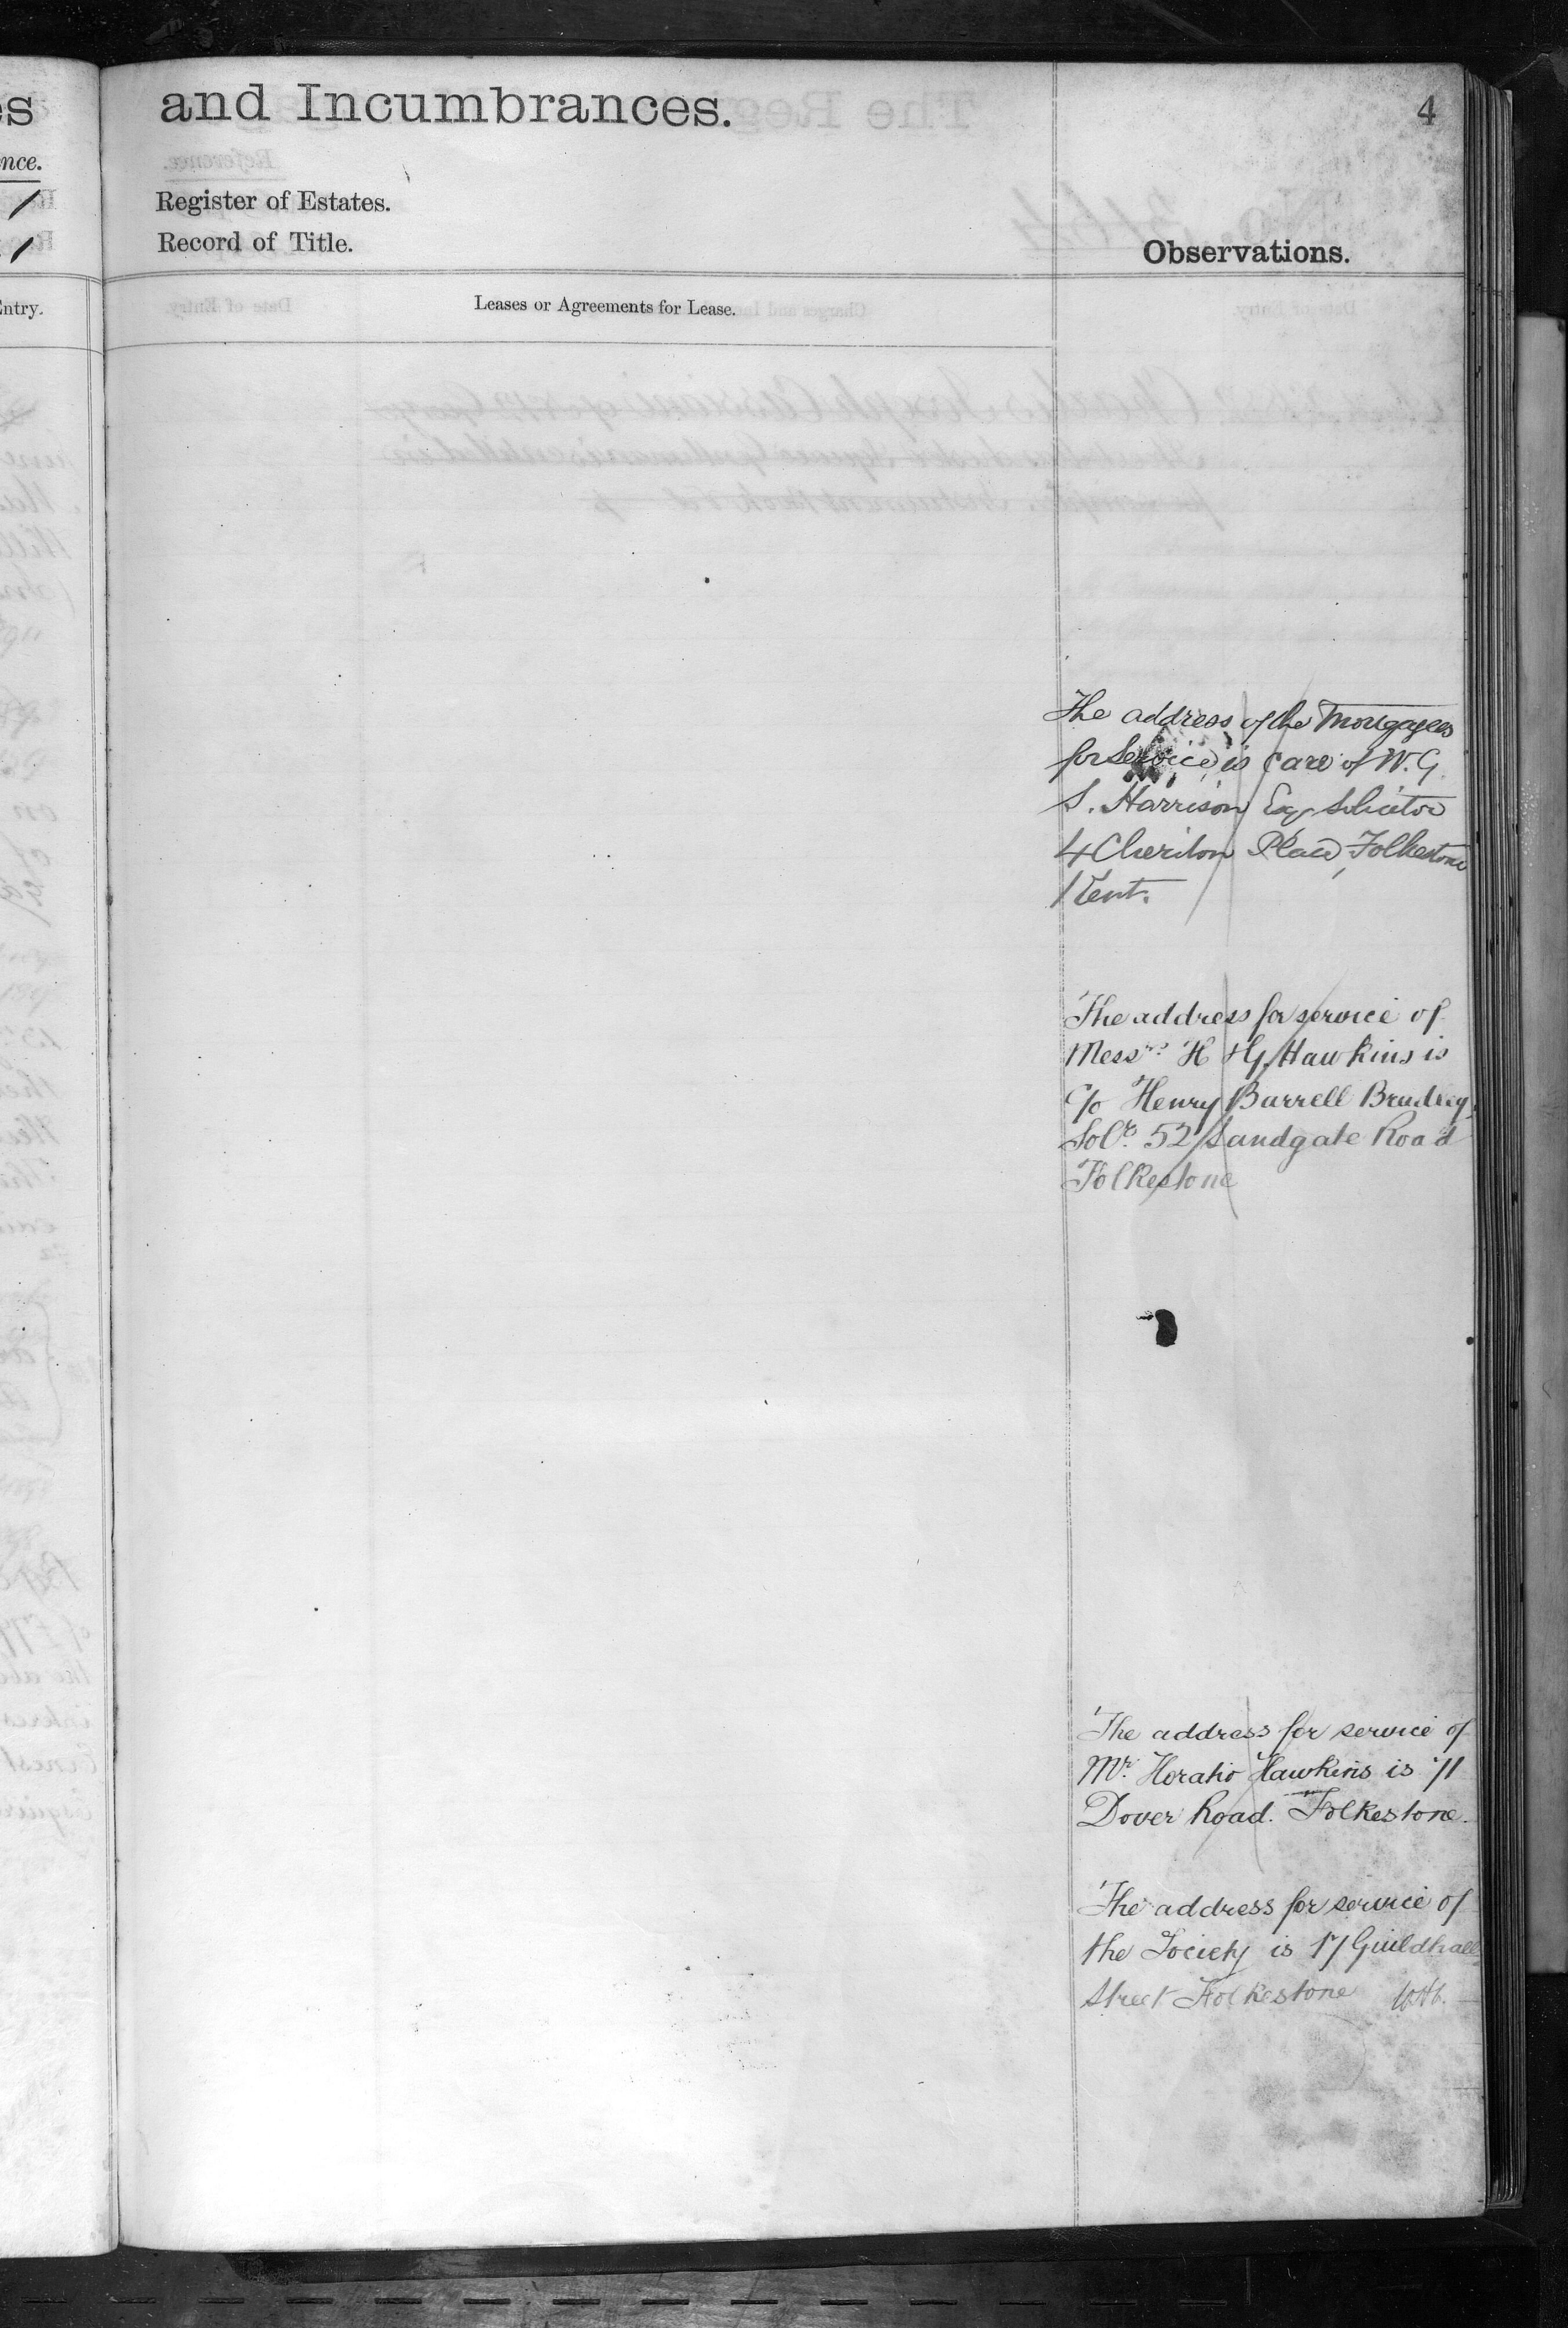 es
and Incumbrances.
4
nce.
Register of Estates.
Record of Title.
Observations.
Entry.
Leases or Agreements for Lease.
The address of the Mortgagees
for Service is care of W. G.
S. Harrison Esq Solicitor
4 Cheriton Place, Folkestone
Kent.
The address for service of
Messrs. H & G. Hawkins is
c/o Henry Burrell Bradley,
Solr. 52 Sandgate Road
Folkestone
The address for service of
Mr. Horatio Hawkins is 71
Dover Road. Folkestone.
The address for service of
the Society is 17 Guildhall
Street Folkestone